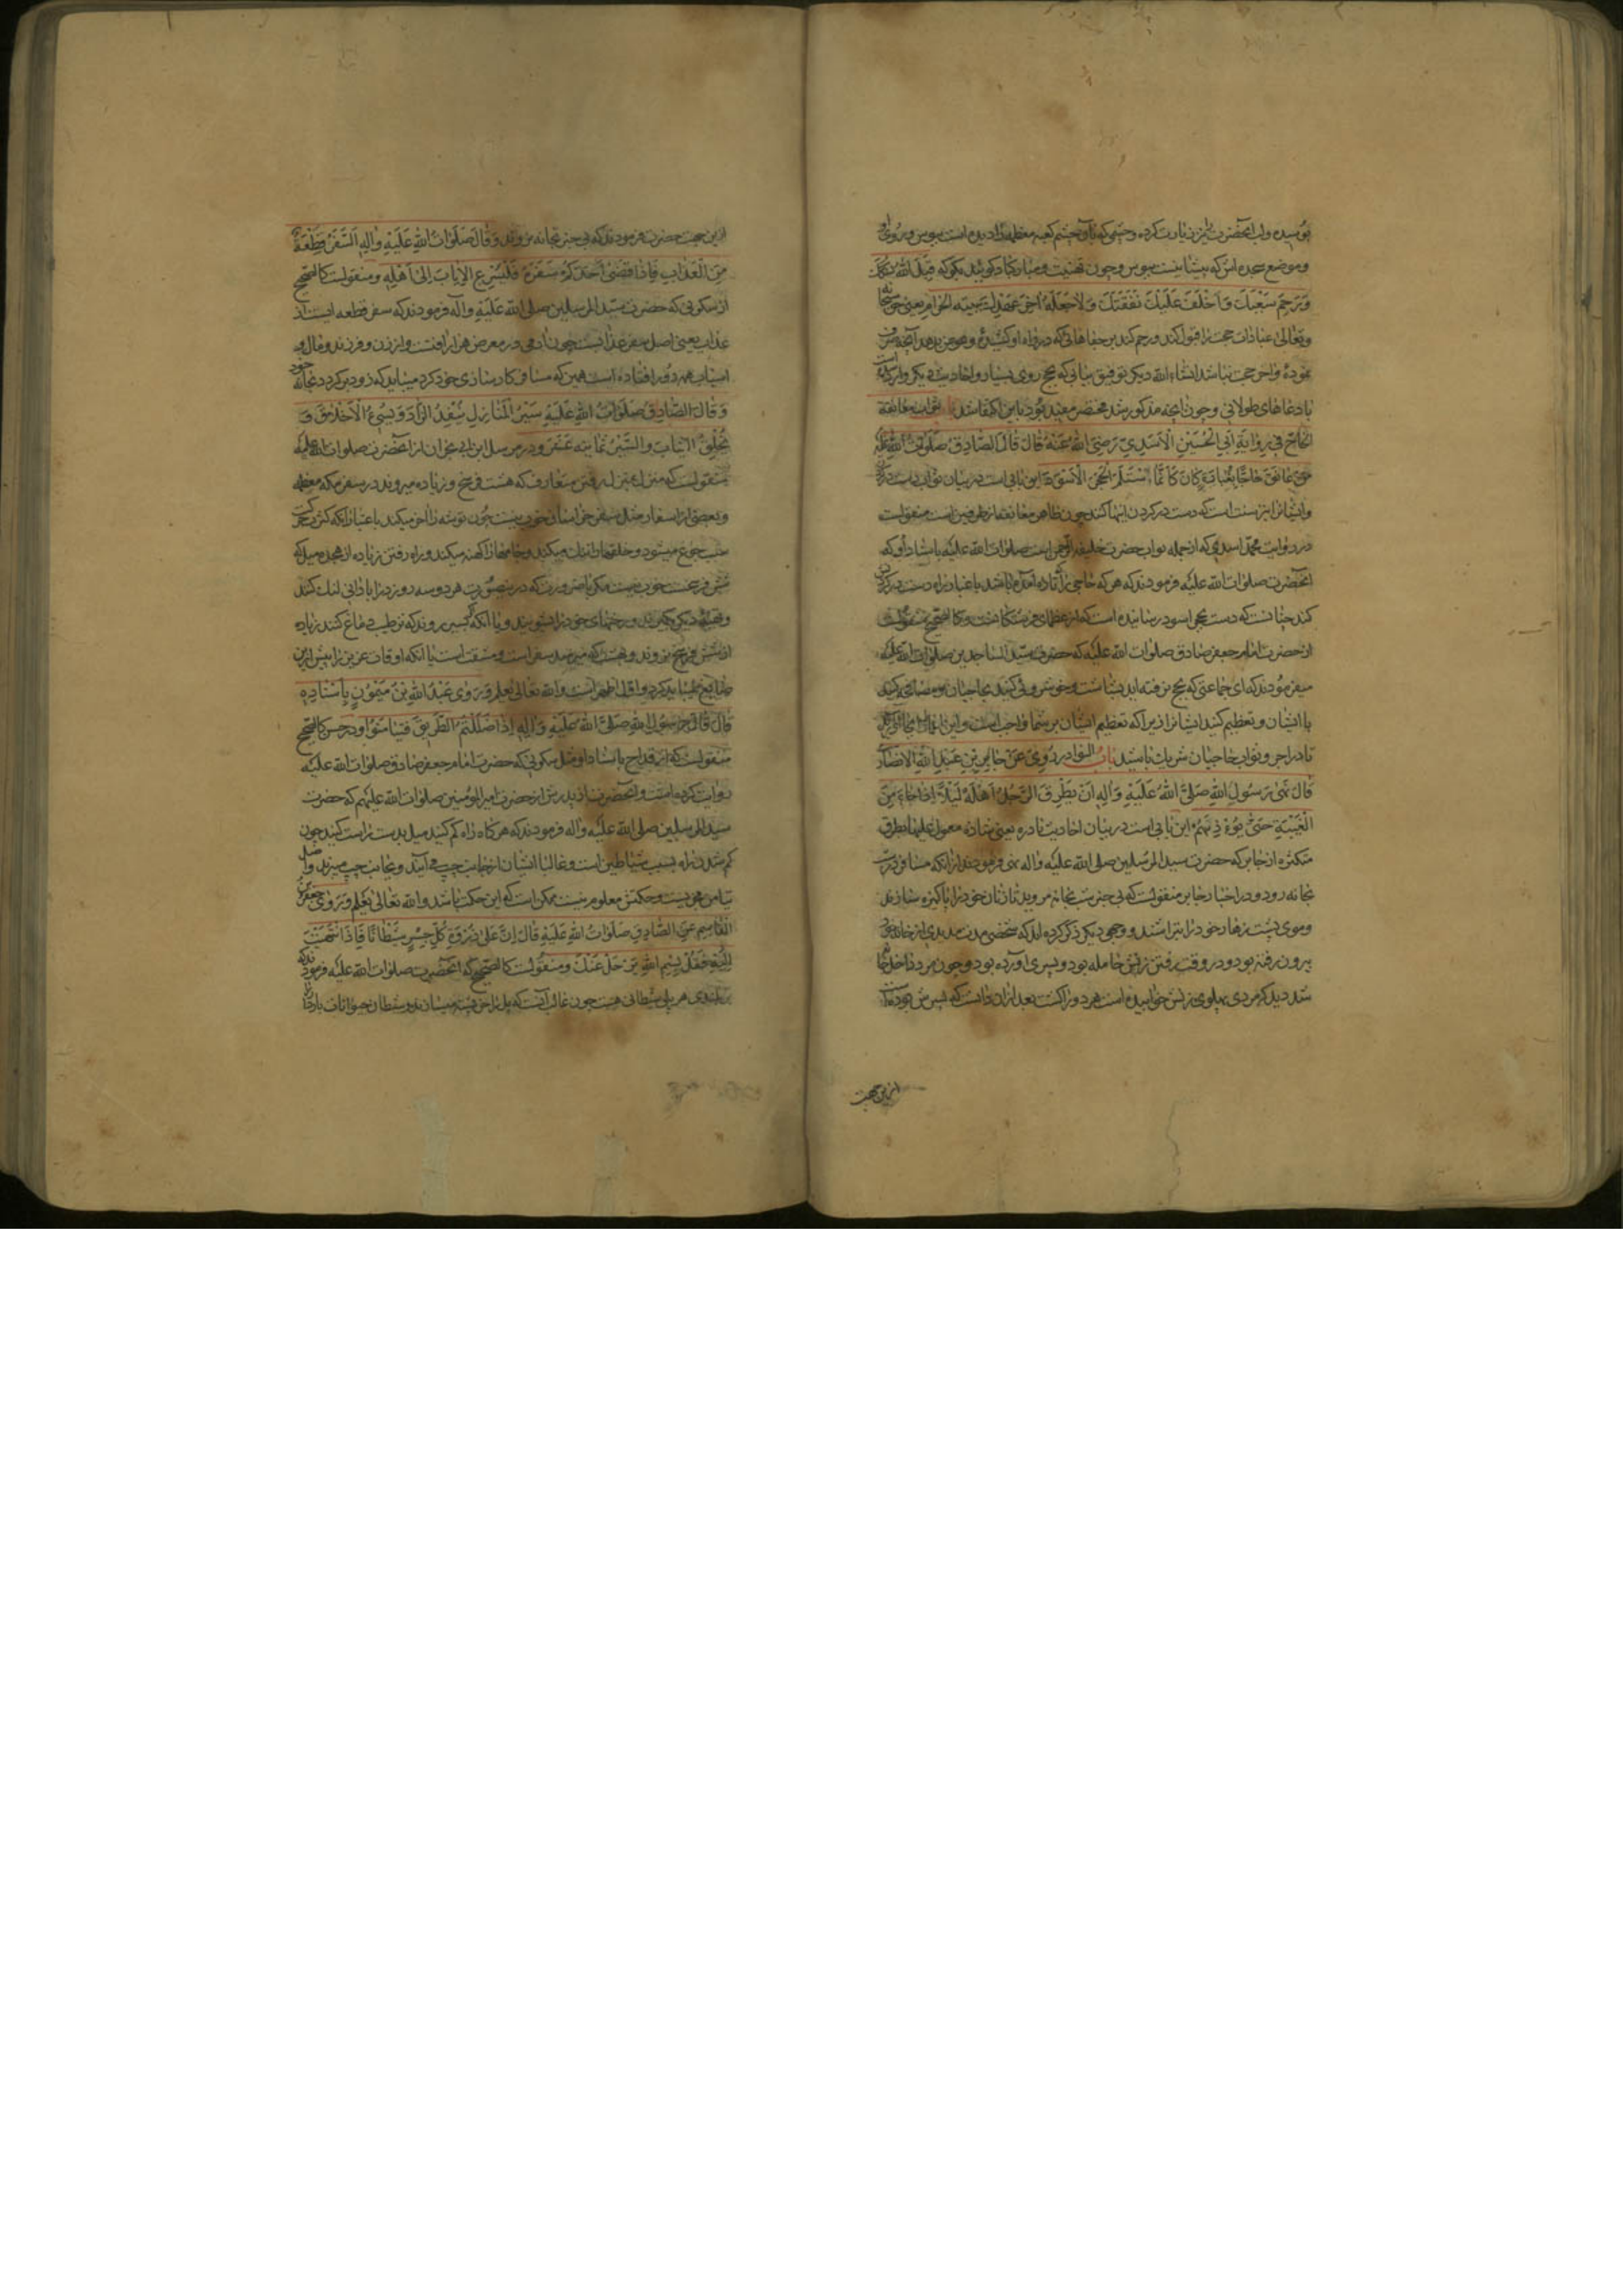 بوسیده و لب آنحضرت را نیز زیارت کرده و چشمی که بآن چشم کعبه معظمه را دیده است ببوس و روی او
و موضع سجده اش که پیشانیست ببوس و چون تهنیت و مبارکباد کوئید بکو که قبل الله نسکک
وَرَحِمَ سَعْیَکَ وَاَخْلَفَ عَلَیْکَ نَفَقَتَکَ وَلاجَعَلَهُ اخِرَ عَهْدِکَ بِبَیْتِهِ الْحَرامِ یعنی حق سبحانه
وتعالی عبادات حجت را قبول کند و رحم کند بر جفاهائی که در راه او کشیدهٔ و عوض بدهد آنچه صرف
نمودهٔ و آخر حجت نباشد انشاء الله دیکر توفیق بیابی که بحج روی بسیار و احادیث دیکر وارد شده است
با دعاهای طولانی و چون آنچه مذکور شد مختصر مفید بود باین اکتفا شد باب ثواب معانقة
الحاجّ فی رِوایَةِ اَبِی الْحُسَیْنِ الْاَسَدِیّ رَضِیَ اللهُ عَنْهُ قالَ قالَ الصّادِقُ صَلَوتُ اللهِ عَلَیْهِ
مَنْ عانَقَ حاجًّا بِغُبارِهِ کانَ کَاَنَّمَا اسْتَلَمَ الْحَجَرَ الْاَسْوَدَ این بابی است در بیان ثواب دست در کردن
و ایشانرا نیز سنت است که دست در کردن اینها کنند چون ظاهر معانقه از طرفین است منقولست
در روایت محمد اسدی که از جمله نواب حضرت خلیفه الرحمن است صلوات الله علیه باسناد او که
آنحضرت صلوات الله علیه فرمودند که هر که حاجی را کتاده آمده باشد با غبار راه دست در کردن
کند چنانست که دست بحجر اسود رسانیده است که از عظمای فرشتکانست و کالصحیح منقولست
از حضرت امام جعفر صادق صلوات الله علیه که حضرت سید الساجدین صلوات الله علیه
میفرمودند که ای جماعتی که بحج نرفته اید بشاشت و خوش روئی کنید با حاجیان و مصافحه کنید
با ایشان و تعظیم کنید ایشانرا زیرا که تعظیم ایشان بر شما واجب است و این
تا در اجر و ثواب حاجیان شریک باشید باب النوادر رُوِیَ عَنْ جابِرِ بْنِ عَبْدِ اللهِ الانصاری
قالَ نَهی رَسُولُ اللهِ صَلَّی اللهُ عَلَیْهِ وَآلِهِ اَنْ یَطْرُقَ الرَّجُلُ اَهْلَهُ لَیْلًا اِذا جاءَ مِنَ
الْغَیْبَةِ حَتّی یُؤْذِنَهُمْ این بابی است در بیان احادیث نادره یعنی شاذه معمول علیها بطرق
متکثره از جابر که حضرت سید المرسلین صلی الله علیه واله نهی فرمودند از آنکه مسافر در شب
بخانه رود و در اخبار جابر منقولست که بی خبر شب بخانه مروید تا زنان خود را پاکیزه سازند
و موی پشت زهار خود را بتراشند و وجهی دیکر ذکر کرده اند که شخصی مدت مدیدی از خانه خود
بیرون رفته بود و در وقت رفتن زنش حامله بود و پسری آورده بود و چون مرد داخل خانه
شد دید که مردی پهلوی زنش خوابیده است هر دو را کشت بعد از آن دانست که پسرش بوده است
ازین جهت
ازین جهت حضرت فرمودند که بی خبر بخانه نروند وَقالَ صَلَواتُ اللهِ عَلَیْهِ وَآلِهِ اَلسَّفَرُ قِطْعَةٌ
مِنَ الْعَذابِ فَاِذا قَضی اَحَدُکُمْ سَفَرَهُ فَلْیُسْرِعِ الْاِیابَ اِلی اَهْلِهِ و منقولست کالصحیح
از سکونی که حضرت سید المرسلین صلی الله علیه وآله فرمودند که سفر قطعه ایست از
عذاب یعنی اصل سفر عذابست چون آدمی در معرض هزار آفتست و از زن و فرزند و مال و
اسباب همه دور افتاده است همین که مسافر کارسازی خود کرد میباید که زود برکردد بخانه خود
وَقالَ الصّادِقُ صَلَواتُ اللهِ عَلَیْهِ سَیْرُ الْمَنازِلِ یُنْفِدُ الزّادَ وَیُسِیءُ الْاَخْلاقَ وَ
یُخْلِقُ الثِّیابَ وَالسَّیْرُ ثَمانِیَةَ عَشَرَ و در مرسل ابن ابی نجران از آنحضرت صلوات الله علیه
منقولست که منزل بمنزل رفتن متعارف که هشت فرسخ و زیاده میروند در سفر مکه معظمه
و بعضی از اسفار مثل سفر خراسان خوب نیست چون توشه را آخر میکند باعتبار آنکه کثرت حرکت
سبب جوع میشود و خلقها را تنک میکند و جامها را کهنه میکند و راه رفتن زیاده از هجده میل که
شش فرسخست خوب نیست مکر باضرورت که درین صورت هر دو سه روز در آبادانی لنک کنند
و تهیهٔ دیکر بکیرند و رختهای خود را بشویند و یا آنکه کسی روند که ترطیب دماغ کنند زیاده
از شش فرسخ نروند و هشت که میرسد سفر است و مشقت است یا آنکه اوقات عزیز را بیش ازین
ضایع نمیباید کرد و اول اظهر است والله تعالی یعلم وَرَوی عَبْدُ اللهِ بْنُ مَیْمُونٍ بِاِسْنادِهِ
قالَ قالَ رَسُولُ اللهِ صَلَّی اللهُ عَلَیْهِ وَآلِهِ اِذا ضَلَلْتُمُ الطَّرِیقَ فَتَیامَنُوا و در حسن کالصحیح
منقولست که ابن قداح باسناد او مثل سکونی که حضرت امام جعفر صادق صلوات الله علیه
روایت کرده است و آنحضرت از پدرش از حضرت امیر المؤمنین صلوات الله علیهم که حضرت
سید المرسلین صلی الله علیه واله فرمودند که هر کاه راه کم کنید میل بدست راست کنید چون
کم شدن راه بسبب شیاطین است و غالبا ایشان از جانب چپ می آیند و بجانب چپ میبرند و اصل
تیامن خوبیست و حکمتش معلوم نیست ممکن است که این حکمت باشد والله تعالی یعلم وَرَوی جَعْفَرُ بْنُ
الْقاسِمِ عَنِ الصّادِقِ صَلَواتُ اللهِ عَلَیْهِ قالَ اِنَّ عَلی ذُرْوَةِ کُلِّ جِسْرٍ شَیْطانًا فَاِذَا انْتَهَیْتَ
اِلَیْهِ فَقُلْ بِسْمِ اللهِ یَرْحَلْ عَنْکَ و منقولست کالصحیح که آنحضرت صلوات الله علیه فرمودند که
بر بلندی هر پلی شیطانی هست چون غالب آنست که پل را خر پشته میسازند و شیطان حیوانات باردار